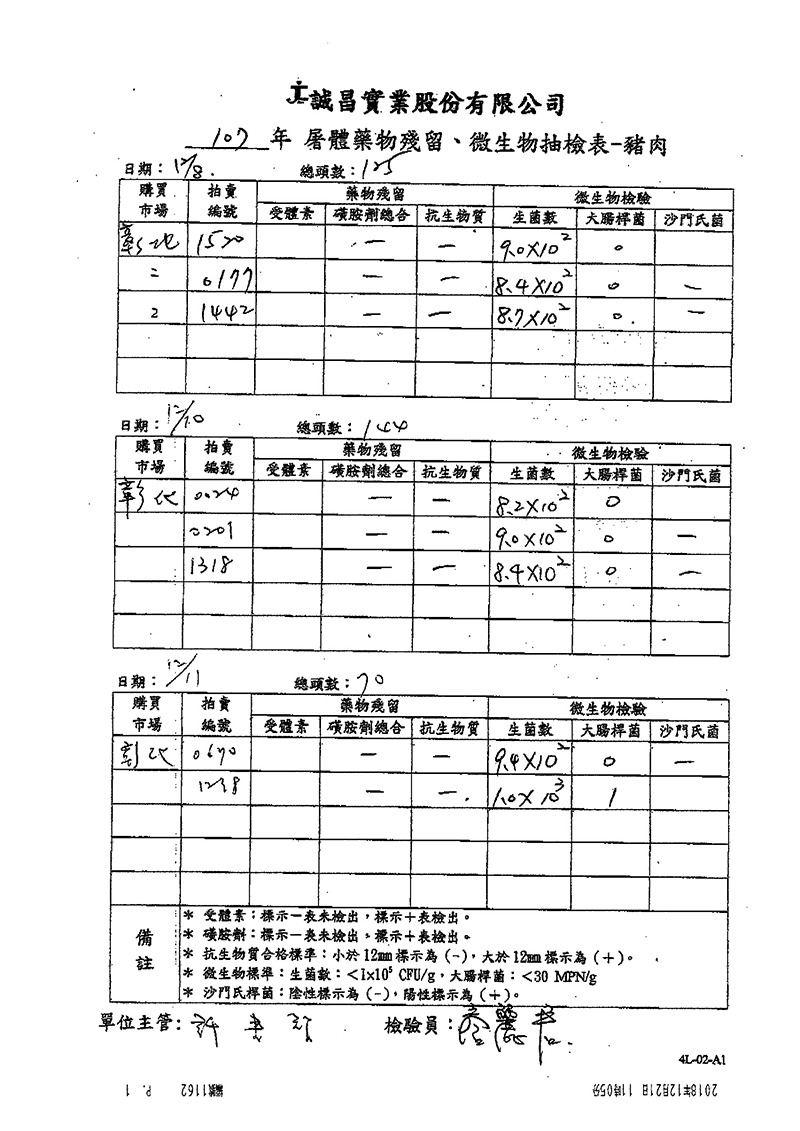 誠昌實業股份有限公司
107 年 屠體藥物殘留、微生物抽檢表-豬肉
日期：12/8. 總頭數：125
購買市場 拍賣編號 藥物殘留 微生物檢驗
受體素 磺胺劑總合 抗生物質 生菌數 大腸桿菌 沙門氏菌
彰化 1520 — — 9.0×10² 0
= 0177 — — 8.4×10² 0 —
2 1442 — — 8.7×10² 0. —
日期：12/10 總頭數：144
購買市場 拍賣編號 藥物殘留 微生物檢驗
受體素 磺胺劑總合 抗生物質 生菌數 大腸桿菌 沙門氏菌
彰化 0024 — — 8.2×10² 0
0201 — — 9.0×10² 0 —
1318 — — 8.4×10² 0 —
日期：12/11 總頭數：70
購買市場 拍賣編號 藥物殘留 微生物檢驗
受體素 磺胺劑總合 抗生物質 生菌數 大腸桿菌 沙門氏菌
彰化 0670 — — 9.4×10² 0 —
1238 — — 1.0×10³ 1
備註
* 受體素：標示－表未檢出，標示＋表檢出。
* 磺胺劑：標示－表未檢出，標示＋表檢出。
* 抗生物質合格標準：小於12mm標示為（-），大於12mm標示為（+）。
* 微生物標準：生菌數：<1x10⁵ CFU/g，大腸桿菌：<30 MPN/g
* 沙門氏桿菌：陰性標示為（-），陽性標示為（+）。
單位主管： 檢驗員：
4L-02-A1
2018年12月21日 11時05分 1162 P. 1